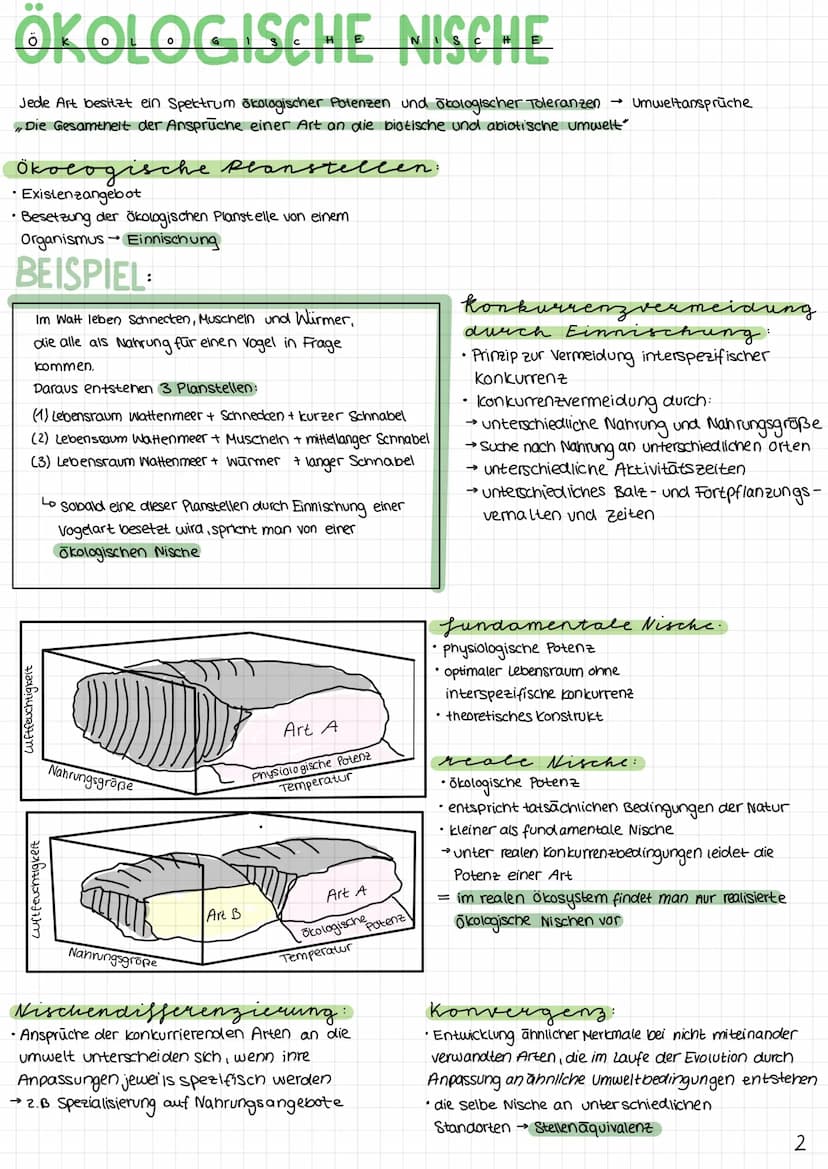 ÖKOLOGISCHE NISCHE
ÖKOLOGISCHE NISCHE
Jede Art besitzt ein Spektrum ökologischer Potenzen und ökologischer Toleranzen → Umweltansprüche
„Die Gesamtheit der Ansprüche einer Art an die biotische und abiotische Umwelt"
Ökologische Planstellen:
· Existenzangebot
· Besetzung der ökologischen Planstelle von einem
Organismus → Einnischung
BEISPIEL:
Im Watt leben Schnecken, Muscheln und Würmer,
die alle als Nahrung für einen Vogel in Frage
kommen.
Daraus entstehen 3 Planstellen:
(1) Lebensraum Wattenmeer + Schnecken + kurzer Schnabel
(2) Lebensraum Wattenmeer + Muscheln + mittellanger Schnabel
(3) Lebensraum Wattenmeer + Würmer + langer Schnabel
↳ Sobald eine dieser Planstellen durch Einnischung einer
Vogelart besetzt wird, spricht man von einer
ökologischen Nische
Konkurrenzvermeidung
durch Einnischung:
· Prinzip zur Vermeidung interspezifischer
Konkurrenz
· Konkurrenzvermeidung durch:
→ unterschiedliche Nahrung und Nahrungsgröße
→ Suche nach Nahrung an unterschiedlichen Orten
→ unterschiedliche Aktivitätszeiten
→ unterschiedliches Balz- und Fortpflanzungs-
verhalten und Zeiten
Luftfeuchtigkeit
Art A
physiologische Potenz
Nahrungsgröße
Temperatur
fundamentale Nische:
· physiologische Potenz
· optimaler Lebensraum ohne
interspezifische Konkurrenz
· theoretisches Konstrukt
reale Nische:
· ökologische Potenz
· entspricht tatsächlichen Bedingungen der Natur
· kleiner als fundamentale Nische
→ unter realen Konkurrenzbedingungen leidet die
Potenz einer Art
= im realen Ökosystem findet man nur realisierte
ökologische Nischen vor
Luftfeuchtigkeit
Art B
Art A
ökologische Potenz
Nahrungsgröße
Temperatur
Nischendifferenzierung:
· Ansprüche der konkurrierenden Arten an die
Umwelt unterscheiden sich, wenn ihre
Anpassungen jeweils spezifisch werden
→ z.B Spezialisierung auf Nahrungsangebote
Konvergenz:
· Entwicklung ähnlicher Merkmale bei nicht miteinander
verwandten Arten, die im Laufe der Evolution durch
Anpassung an ähnliche Umweltbedingungen entstehen
· die selbe Nische an unterschiedlichen
Standorten → Stellenäquivalenz
2